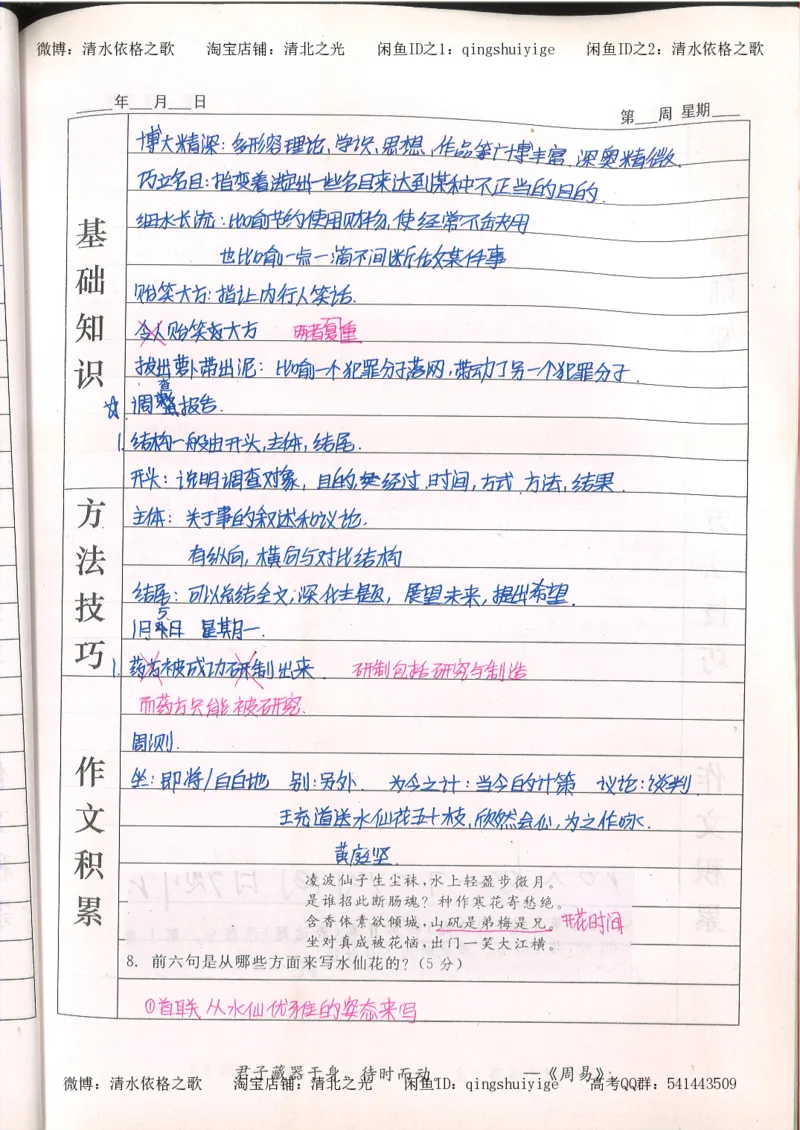 微博：清水依格之歌 淘宝店铺：清北之光 闲鱼ID之1：qingshuiyige 闲鱼ID之2：清水依格之歌
年 月 日 第 周 星期
基础知识
博大精深：多形容理论、学识、思想、作品等广博丰富，深奥精微.
巧立名目：指变着法定出一些名目来达到某种不正当的目的.
细水长流：比喻节约使用财物，使经常不缺用
也比喻一点一滴不间断做某件事
贻笑大方：指让内行人笑话.
令人贻笑大方 两者复重
拔出萝卜带出泥：比喻一个犯罪分子落网，带动了另一个犯罪分子.
☆调查报告.
1.结构一般由开头，主体，结尾.
开头：说明调查对象，目的，经过，时间，方式，方法，结果.
方法技巧
主体：关于事的叙述和议论.
有纵向，横向与对比结构
结尾：可以总结全文，深化主题，展望未来，提出希望.
1月5日 星期一.
1.药方被成功研制出来. 研制包括研究与制造
而药方只能被研究.
作文积累
周测.
坐：即将/白白地 别：另外. 为今之计：当今的计策 议论：谈判.
王充道送水仙花五十枝，欣然会心，为之作咏.
黄庭坚.
凌波仙子生尘袜，水上轻盈步微月。
是谁招此断肠魂？种作寒花寄愁绝。
含香体素欲倾城，山矾是弟梅是兄。开花时间
坐对真成被花恼，出门一笑大江横。
8. 前六句是从哪些方面来写水仙花的？（5分）
①首联 从水仙优雅的姿态来写
君子藏器于身，待时而动。 ——《周易》
微博：清水依格之歌 淘宝店铺：清北之光 闲鱼ID：qingshuiyige 高考QQ群：541443509